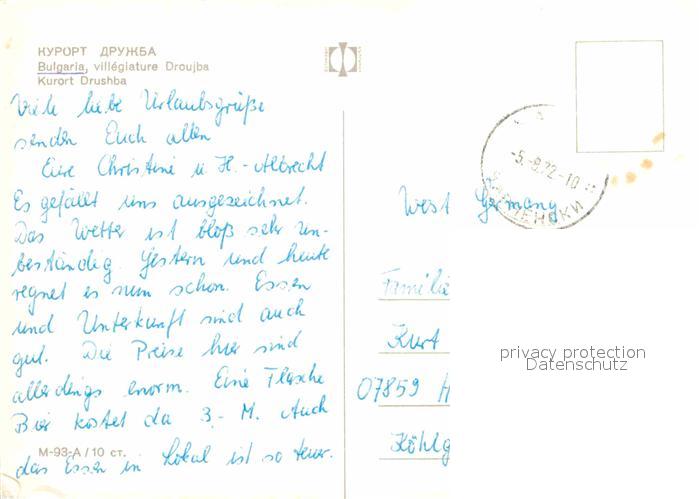 КУРОРТ ДРУЖБА
Bulgaria, villégiature Droujba
Kurort Drushba
Viele liebe Urlaubsgrüße
senden Euch allen
Eure Christine u. H.-Albrecht
Es gefällt uns ausgezeichnet.
Das Wetter ist bloß sehr un-
beständig. Gestern und heute
regnet es nun schon. Essen
und Unterkunft sind auch
gut. Die Preise hier sind
allerdings enorm. Eine Flasche
Bier kostet da 3,- M. Auch
das Essen im Lokal ist so teuer.
М-93-А / 10 ст.
-5.-8.72-10
West Germany
Familie
Kurt
07859 H
Köhlg
privacy protection
Datenschutz